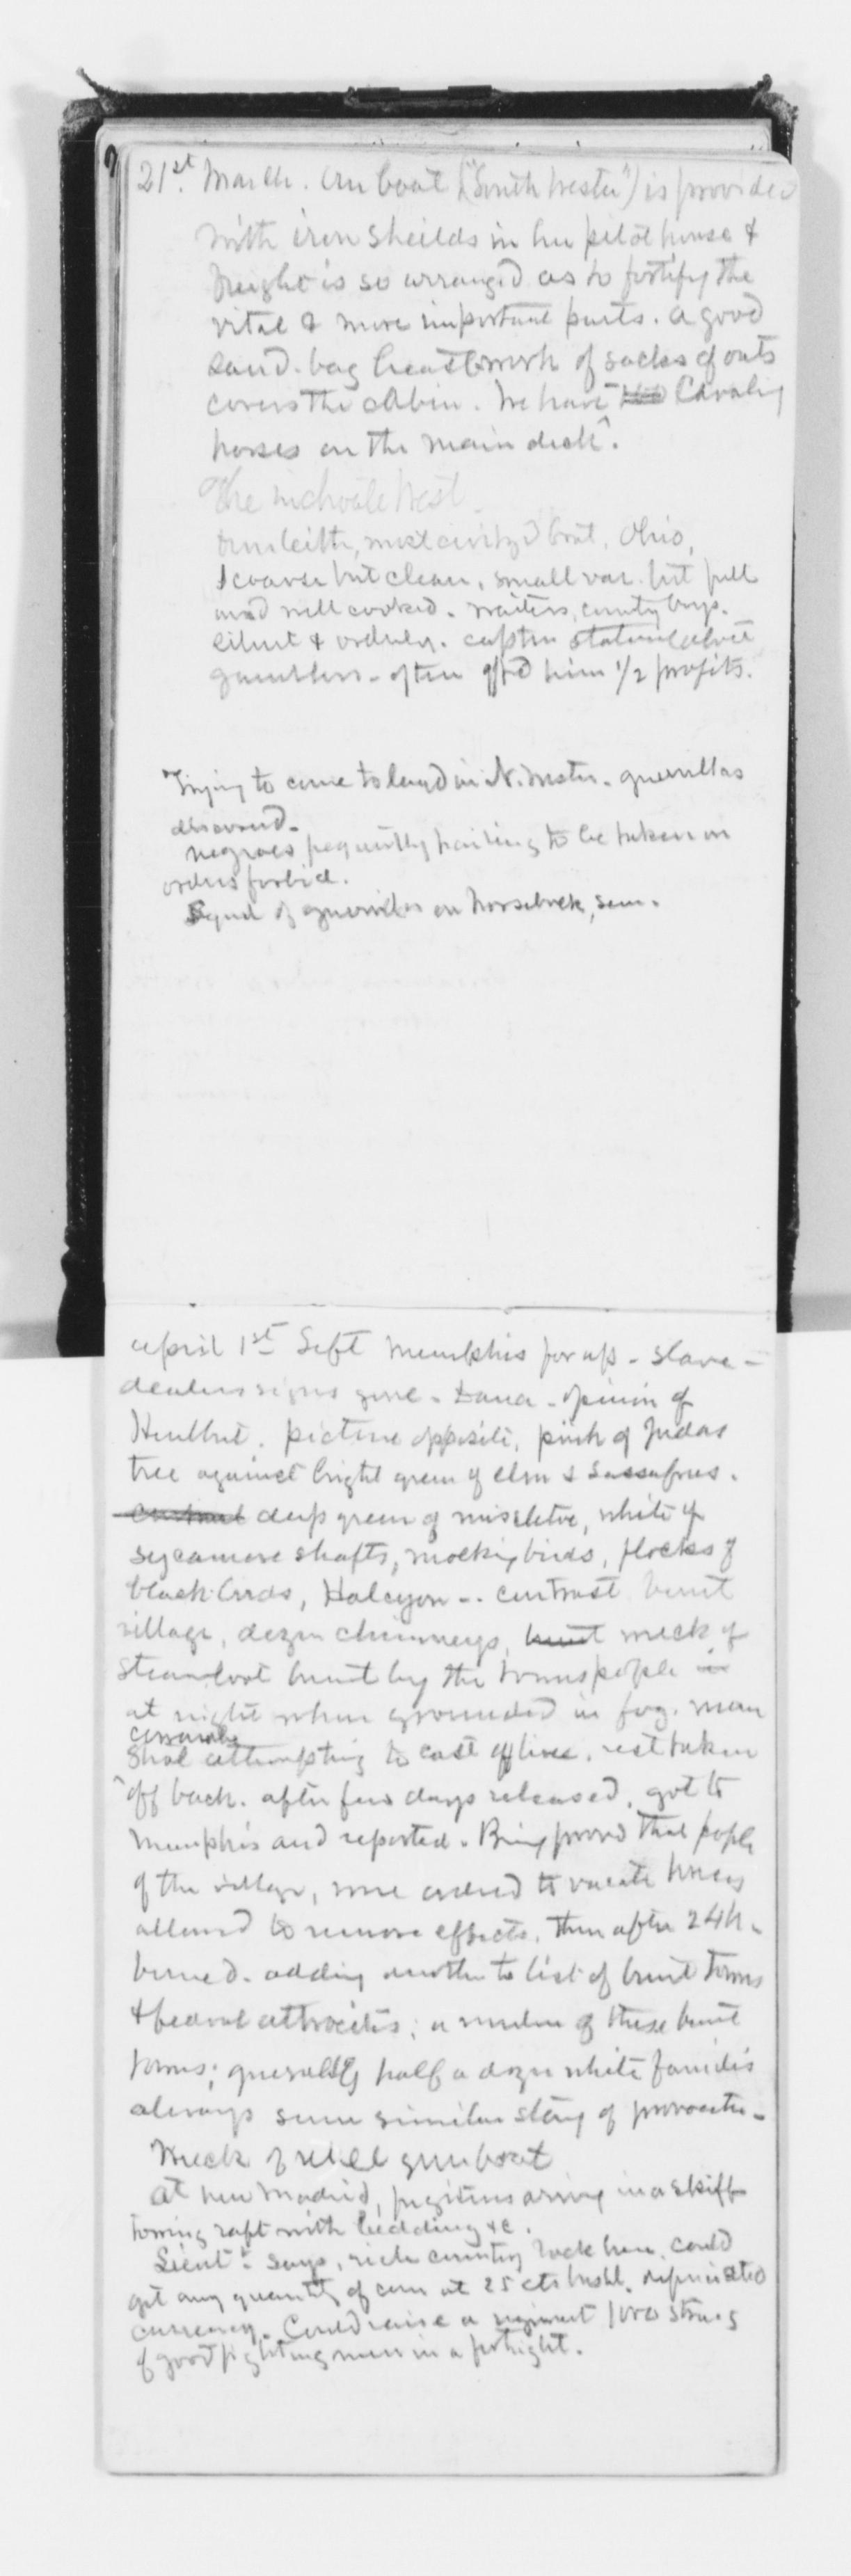 21st March. Our boat ("South Wester") is provided
with iron sheilds in her pilot house &
freight is so arranged as to fortify the
vital & more important parts. A good
sand-bag breastwork of sacks of oats
covers the cabin. We have Cavalry
horses on the main deck.
The inchoate West
most civilizd boat. Ohio,
coarse but clean, small var. but full
and well cooked. waiters, country boys.
silent & orderly. captn statement about
gamblers - often offrd him 1/2 profits.
Trying to come to land in N. Wester. guerrillas
discovered.
negroes frequently hailing to be taken on
orders forbid.
Squad of guerrillas on horseback, seen.
April 1st Left Memphis for up - Slave-
dealers signs gone - opinion of
Hurlbut. picture opposite, pink of Judas
tree against bright green of elm & Sassafras.
contrast deep green of misseltoe, white of
sycamore shafts, mocking birds, flocks of
black birds, Halcyon -- contrast burnt
village, dozen chimneys, burnt wreck of
steamboat burnt by the townspeople in
at night when grounded in fog. man
shot attempting to cast off lines. rest taken
off back. after few days released, got to
Memphis and reported. Being proved that people
of the village, were ordered to vacate houses
allowed to remove effects, then after 24h.
burned. adding another to list of burnt towns
& fedral attrocites; a number of these burnt
towns; generally half a dozen white families
always some similar story of provocatn -
Wreck of rebel gunboat
At New Madrid, fugitives arriving in a skiff
towing raft with bedding &c.
Lieut. says, rich country back here. could
get any quantity of corn at 25 cts bushl.
currency. Could raise a regiment 1000 strong
of good fighting men in a fortnight.